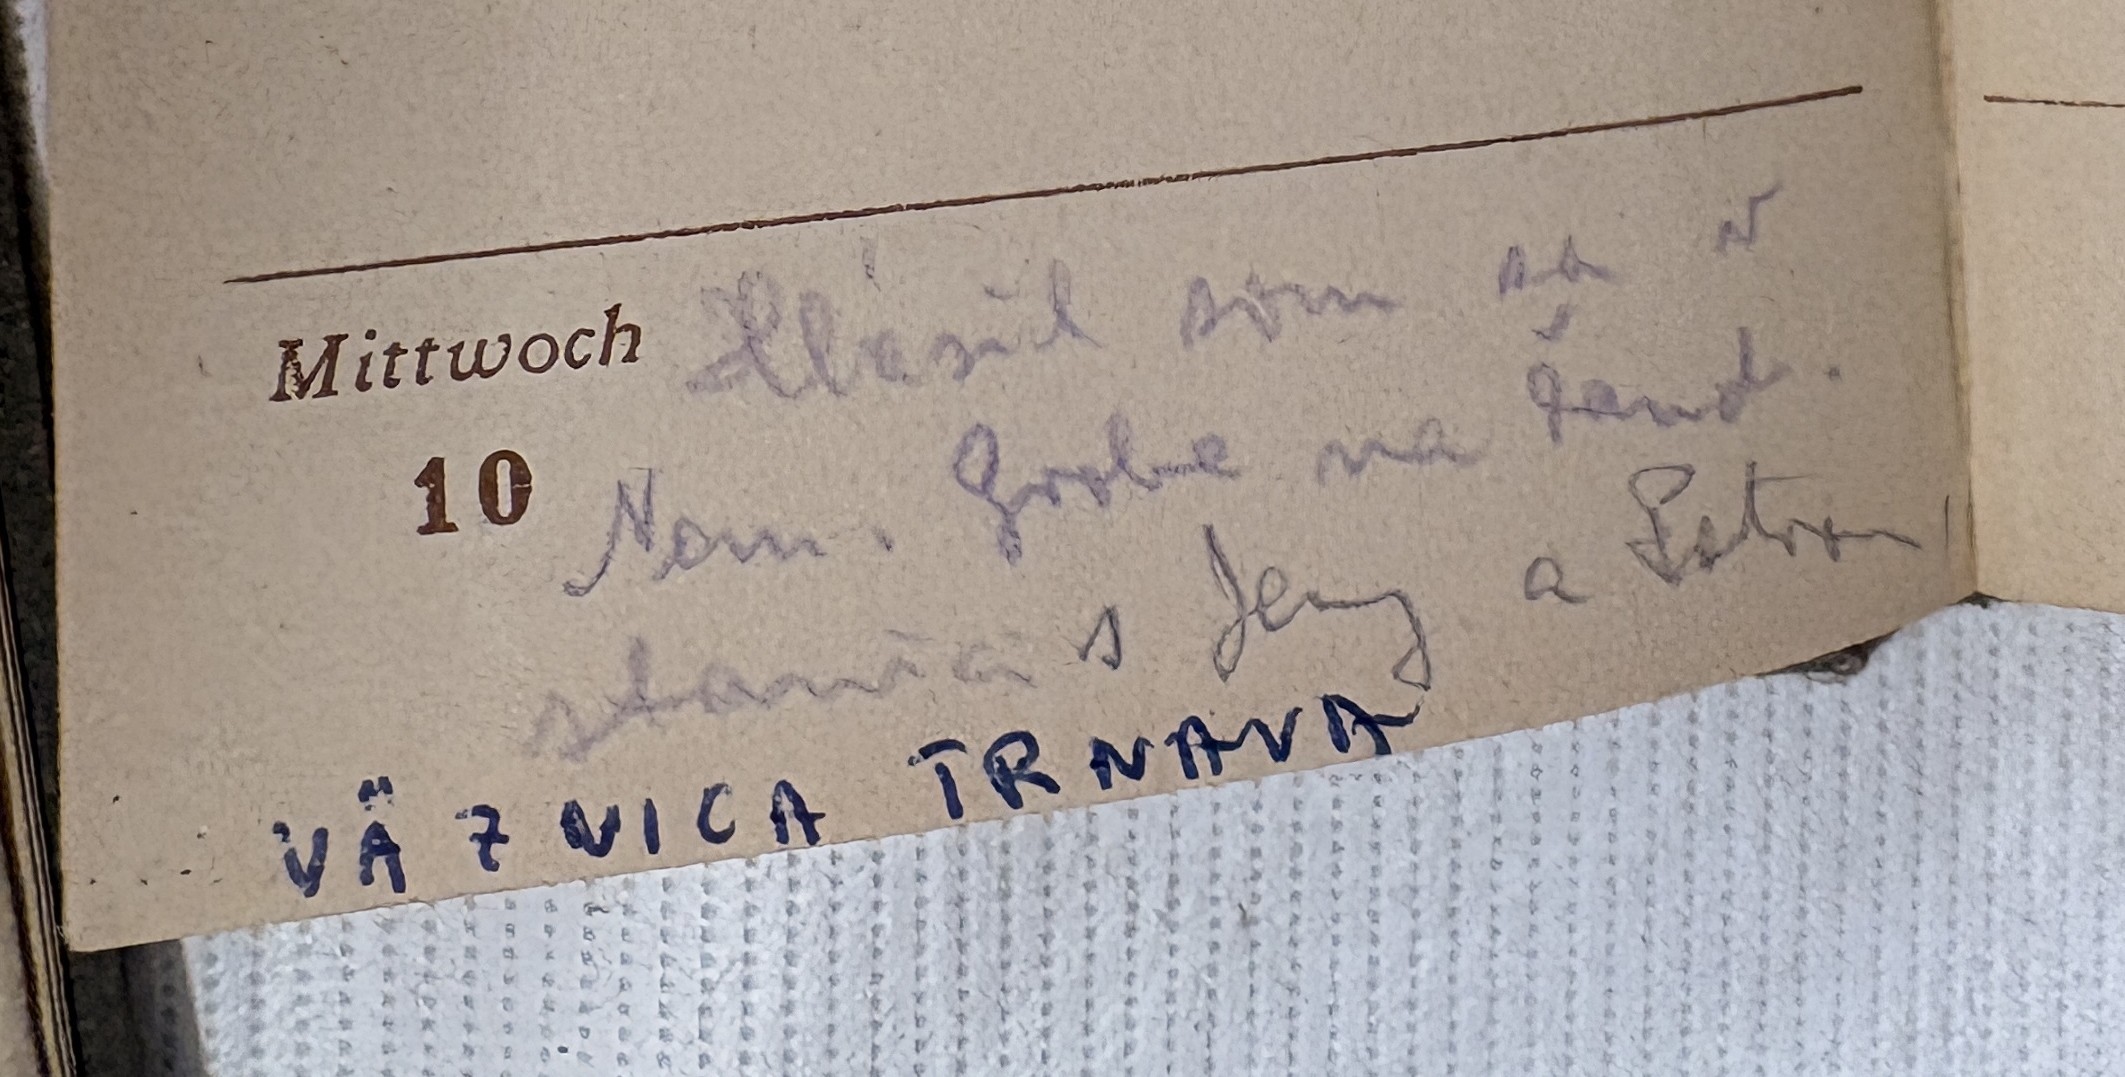 Mittwoch Hlásil som sa v
10 Nem. Grobe na žand.
stanici s Jeny a
VÄZNICA TRNAVA